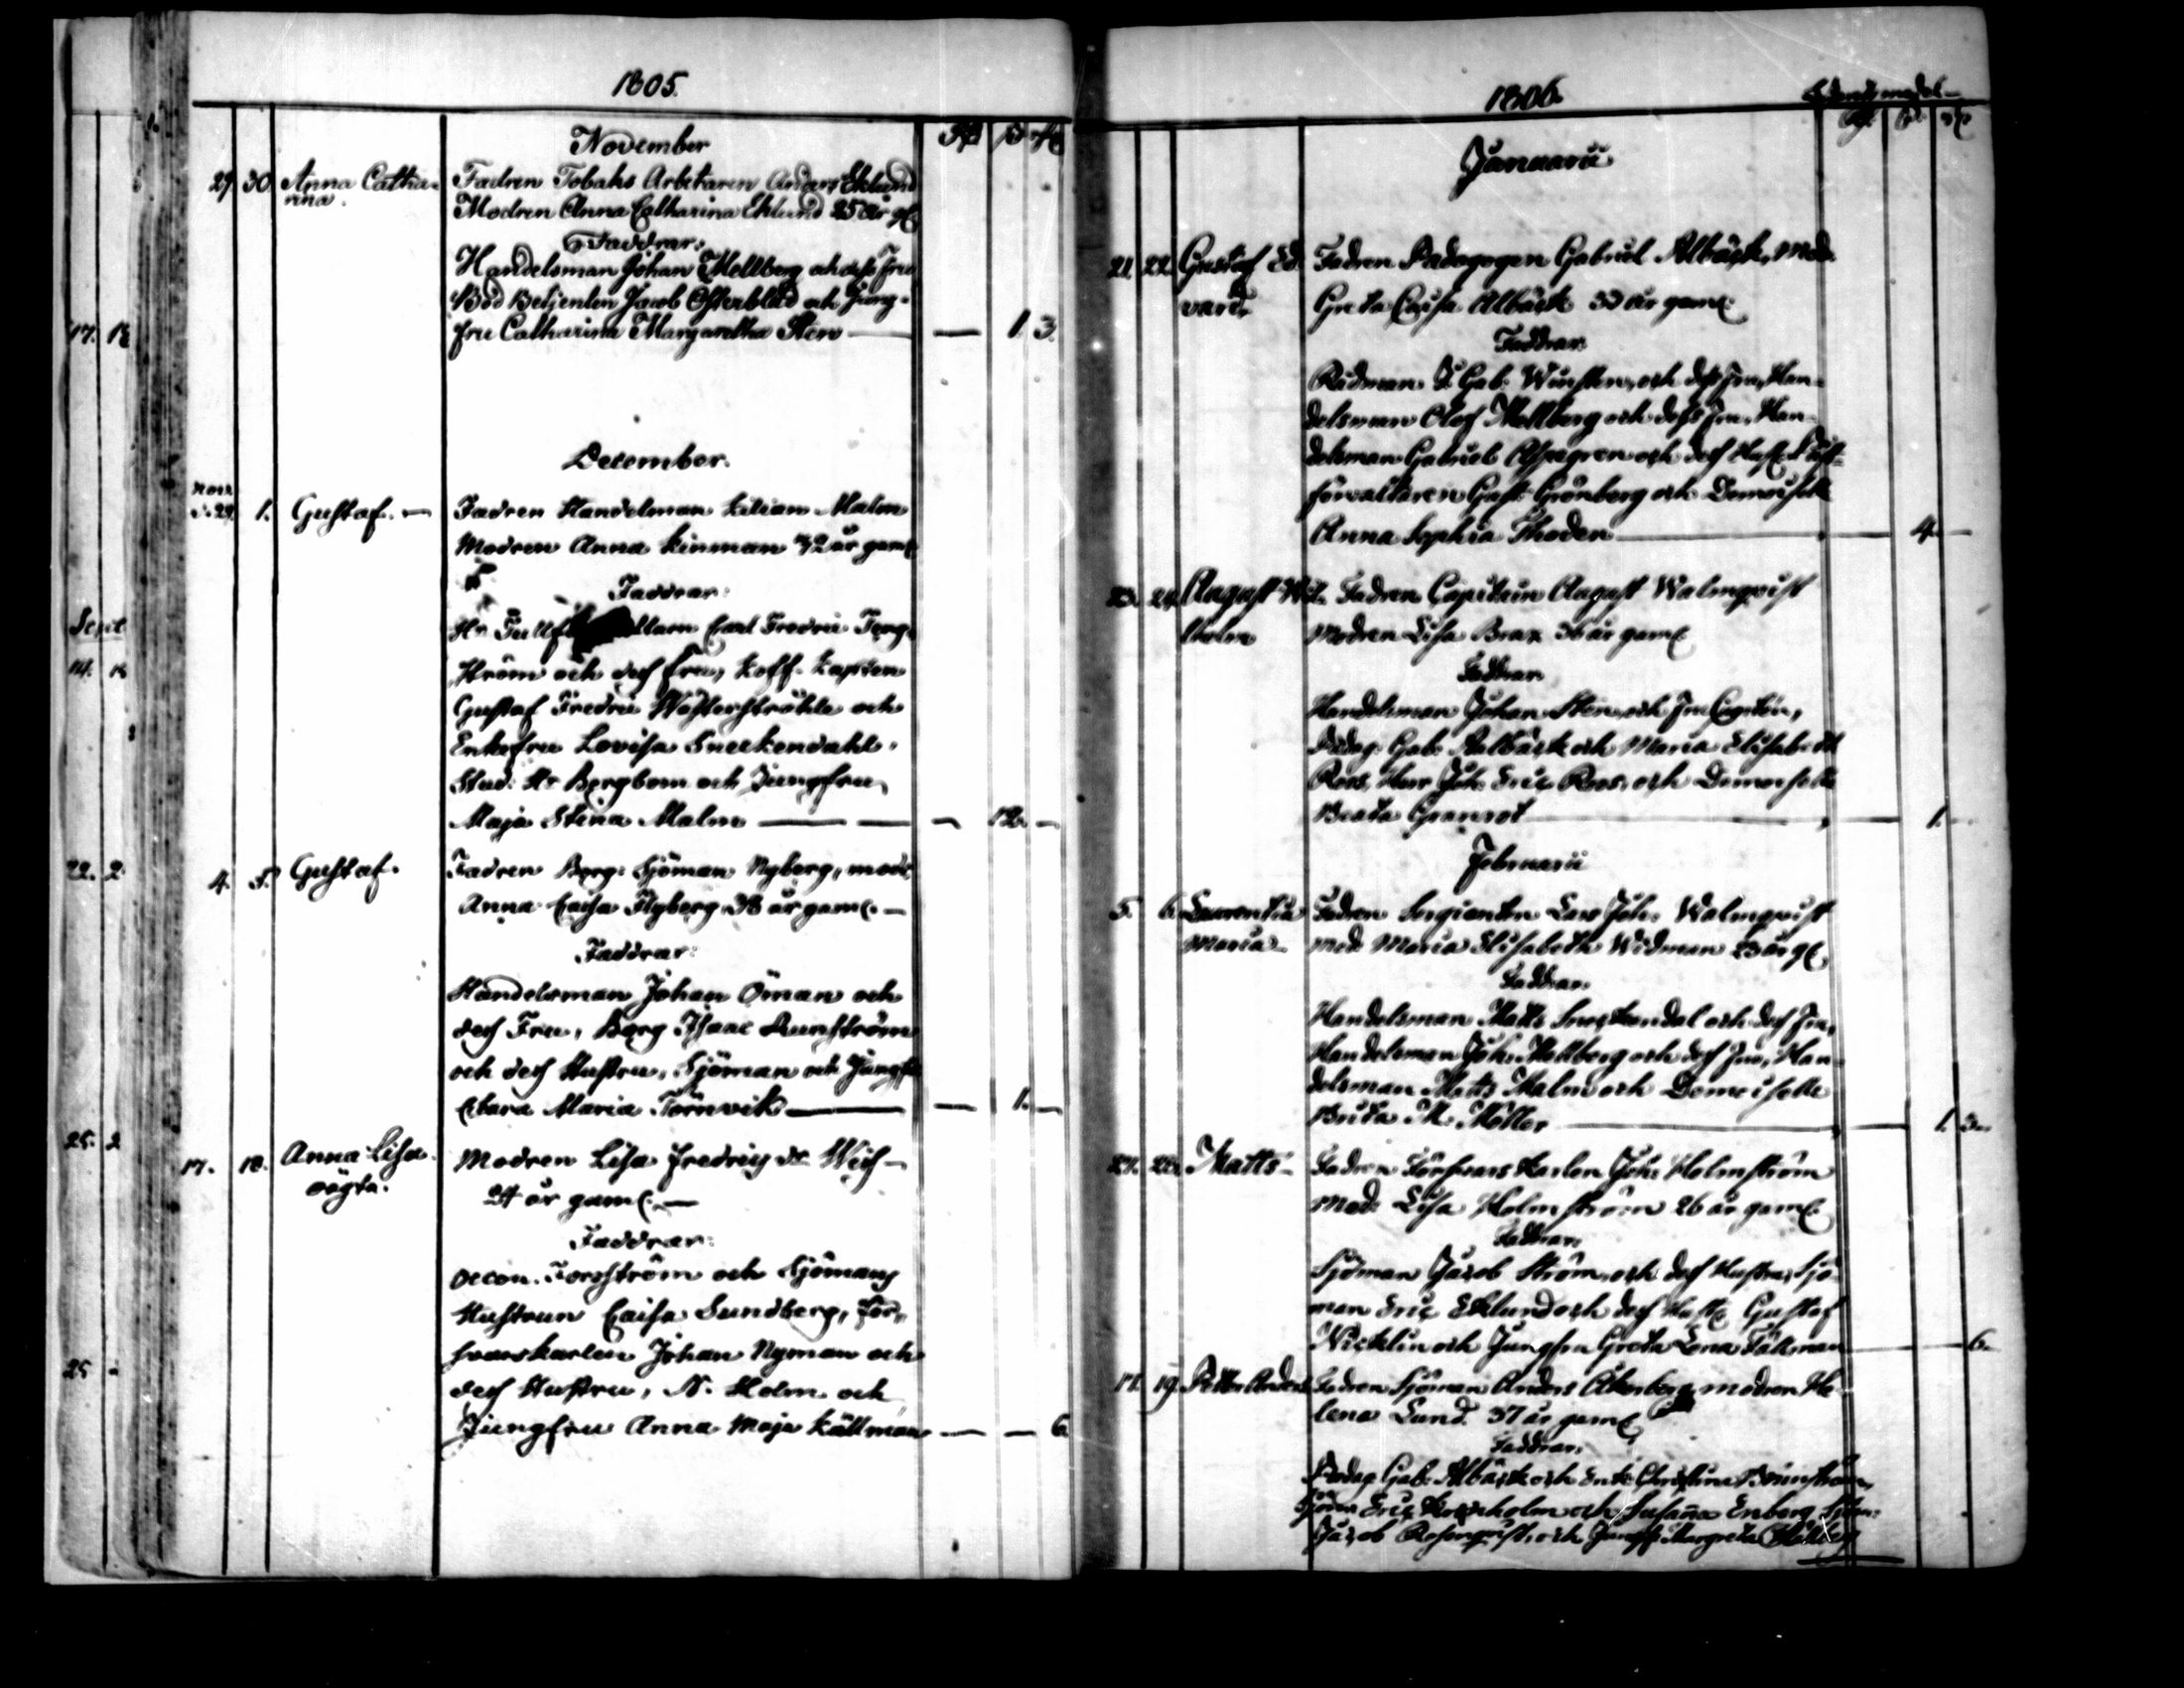 1805.
November
29. 30. Anna Catha- Fadren Tobaks Arbetaren Anders Eklund
rina. Modren Anna Catharina Eklund 25 år gl.
Faddrar:
Handelsman Johan Mellberg och dess fru
Bod Betjenten Jacob Österblad och Jung-
fru Catharina Margaretha Sten — — 1. 3.
17.
December.
Nov.
d. 29. 1. Gustaf. — Fadren Handelsman Kilian Malm
Modren Anna Kinman 42 år gaml.
Faddrar:
Hr Carl Fredric Teng-
ström och dess fru, Koff. Kapten
Gustaf Fredric Wästerstråhle och
Enkefru Lovisa Sneckendahl,
Stud. Hr Bergbom och Jungfru
Maja Stina Malm — — — 12. —
Sept.
14.
22. 2
4. 5. Gustaf. Fadren Borg. Sjöman Nyberg, modr.
Anna Caisa Nyberg 38 år gaml. —
Faddrar:
Handelsman Johan Öman och
dess Fru, Borg Isaac Runström
och dess Hustru, Sjöman och Jungfr.
Clara Maria Törnvik — — 1. —
25. 2
17. 18. Anna Lisa Modren Lisa Fredrics dr Weis —
oägta. 24 år gaml. —
Faddrar:
Oecon. Forsström och Sjömans
Hustrun Caisa Sundberg, För-
svarskarlen Johan Nyman och
dess Hustru, N. Holm och
Jungfru Anna Maja Källman — — 6.
25
1806.
Januarii
21. 22. Gustaf Ed- Fadren Pædagogen Gabriel Albäck, Modr.
vard. Greta Caisa Albäck 33 år gaml.
Faddrar
Rådman J. Gab. Winsten, och dess fru, Han-
delsman Olof Mellberg och dess fru, Han-
delsman Gabriel Aspegren och dess Hust.
förvaltaren Gust. Grönberg och Demoiselle
Anna Sophia Thoden — 4. —
23. 24. August Wil- Fadren Capitain August Walmqvist
helm Modren Lisa Brax 36 år gaml.
Faddrar
Handelsman Johan Sten, och
Pædag. Gab. Aalbäck och Maria Elisabeth
Roos, Herr Joh. Eric Roos, och Demoiselle
Beata Granrot — 1.
Februarii
5. 6. Laurentia Fadren Sergianten Lars Joh. Walmqvist
Maria — mod. Maria Elisabeth Widman 23 år gl.
Faddrar.
Handelsman Matts Sneckendal och dess fru,
Handelsman Joh. Mellberg och dess fru, Han-
delsman Matts Malm och Demoiselle
Brita M. Möller — 1. 3.
27. 28. Matts — Fadren Försvars Karlen Joh. Holmström
Mod. Lisa Holmström 26 år gaml.
Faddrar.
Sjöman Jacob Ström, och dess Hustru, Sjö-
man Eric Eklund och dess Hust. Gustaf
Nicklin och Jungfru Greta Lena Fältman — 6.
17. 19. Petter Anders Fadren Sjöman Anders Åkerberg modren He-
lena Lund. 37 år gaml.
Faddrar.
Pædag. Gab. Albäck och Enk. Christina
Sjöm. Eric Korsholm och Susaña Enberg, Sjöm.
Jacob Rosenqvist, och Jungf. Margreta